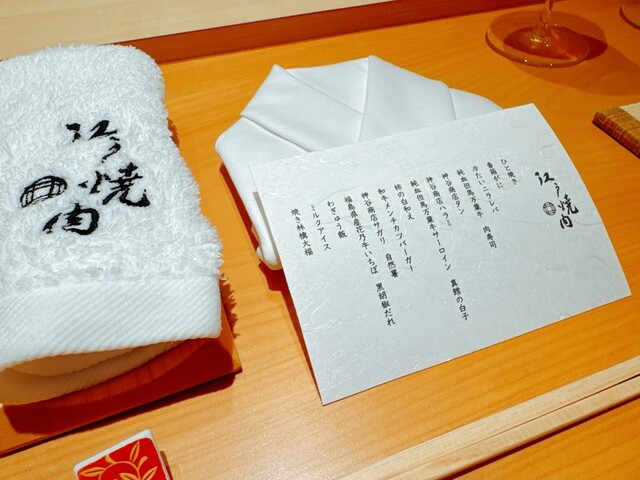 江戸焼肉
江戸焼肉
ひと焼き
香箱がに
冷たいニラレバ
純血但馬万葉牛 肉寿司
神谷商店タン
純血但馬万葉牛サーロイン 真鱈の白子
神谷商店ハラミ
柿の白和え
和牛メンチカツバーガー
神谷商店サガリ 自然薯
福島県産花乃牛いちぼ 黒胡椒だれ
わぎゅう飯
ミルクアイス
焼き林檎大福